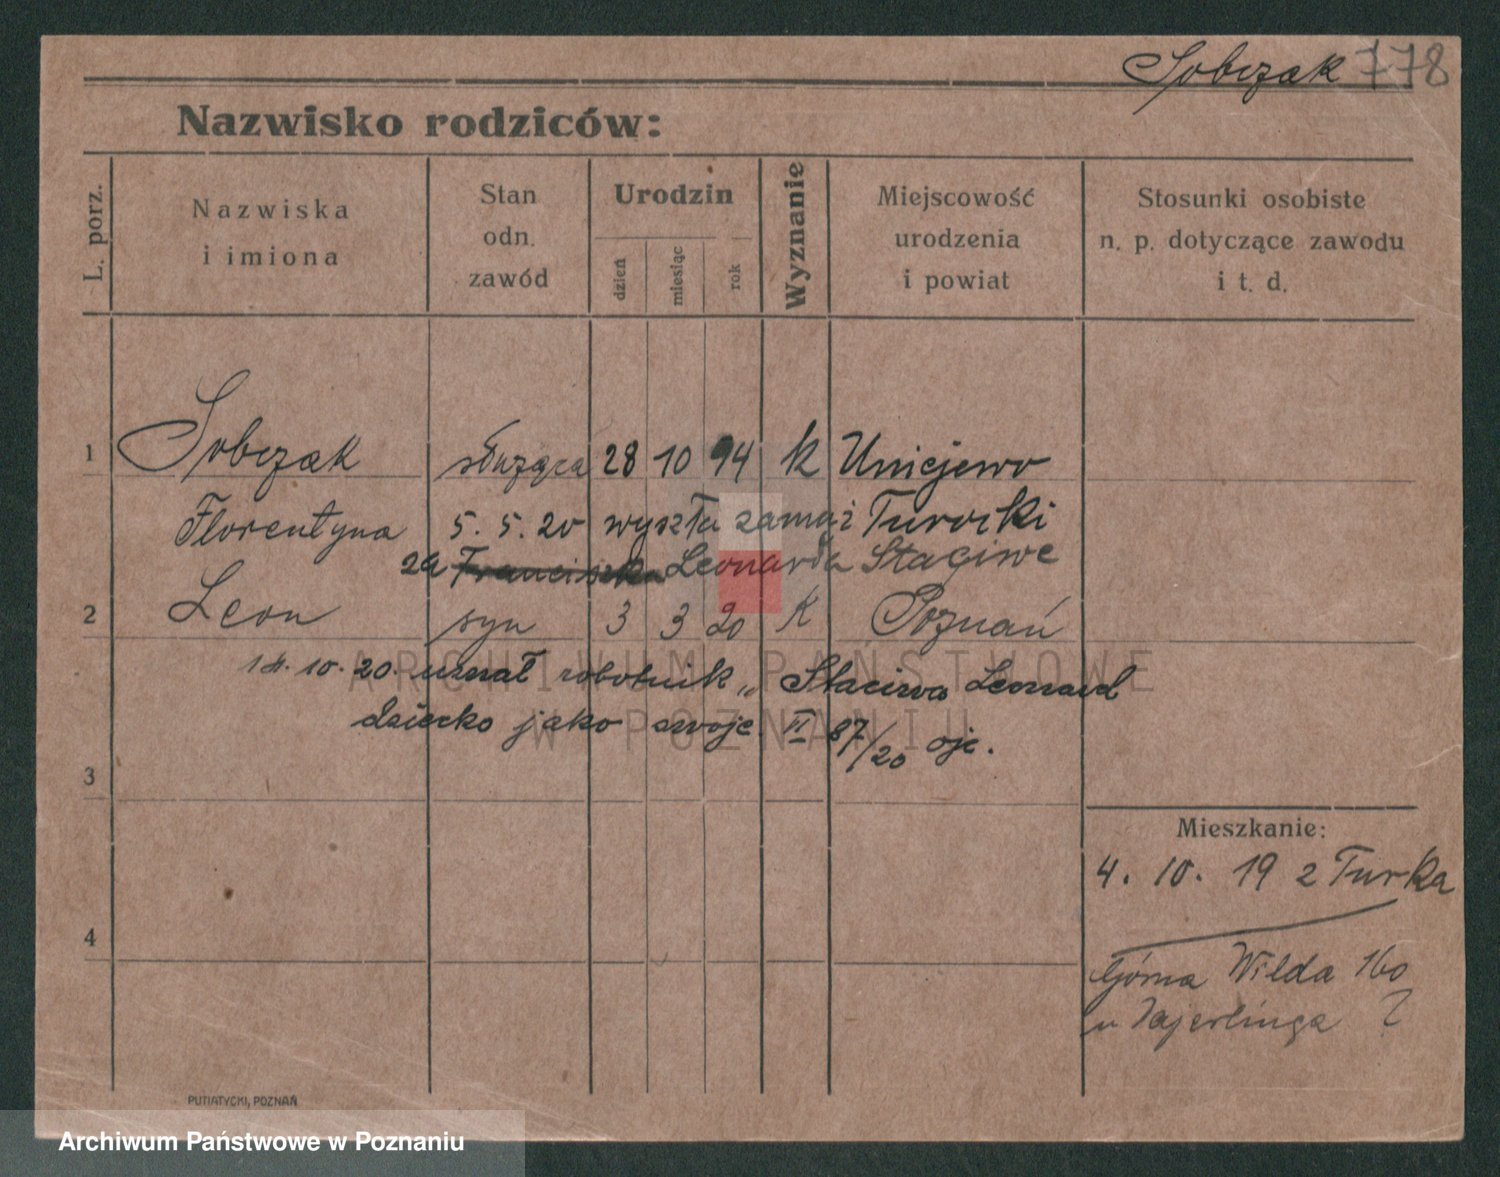 Sobczak 778
Nazwisko rodziców:
L. porz.
Nazwiska
i imiona
Stan
odn.
zawód
Urodzin
dzień
miesiąc
rok
Wyznanie
Miejscowość
urodzenia
i powiat
Stosunki osobiste
n. p. dotyczące zawodu
i t. d.
1 Sobczak służąca 28 10 94 k Uniejewo
Florentyna 5. 5. 20 wyszła zamąż Turocki
za Franciszka Leonarda Staciwe
2 Leon syn 3 3 20 K Poznań
14. 10. 20. uznał robotnik „ Staciwa Leonard
dziecko jako swoje. II 87/20 ojc.
3
Mieszkanie:
4. 10. 19 z Turka
4
Górna Wilda 160
u
PUTIATYCKI, POZNAŃ
ARCHIWUM PAŃSTWOWE
W POZNANIU
Archiwum Państwowe w Poznaniu